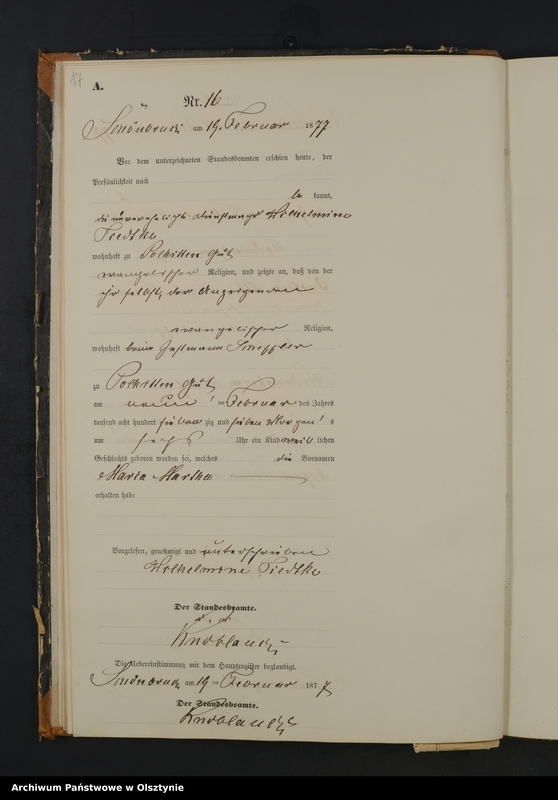 17
A.
Nr. 16
Schönbruch am 19. Februar 1877
Vor dem unterzeichneten Standesbeamten erschien heute, der
Persönlichkeit nach
be kannt,
die unverehelichte Dienstmagd Wilhelmine
Tiedtke
wohnhaft zu Polkitten Gut
evangelischer Religion, und zeigte an, daß von der
ihr selbst, der Anzeigenden
evangelischer Religion,
wohnhaft beim Gastmann Scheffler
zu Polkitten Gut
am neun ten Februar des Jahres
tausend acht hundert sieben zig und sieben Morgens
um sechs Uhr ein Kind weib lichen
Geschlechts geboren worden sei, welches die Vornamen
Maria Martha
erhalten habe
Vorgelesen, genehmigt und unterschrieben
Wilhelmine Tiedtke
Der Standesbeamte.
Knoblauch
Die Uebereinstimmung mit dem Hauptregister beglaubigt.
Schönbruch am 19 ten Februar 1877
Der Standesbeamte.
Knoblauch
Archiwum Państwowe w Olsztynie